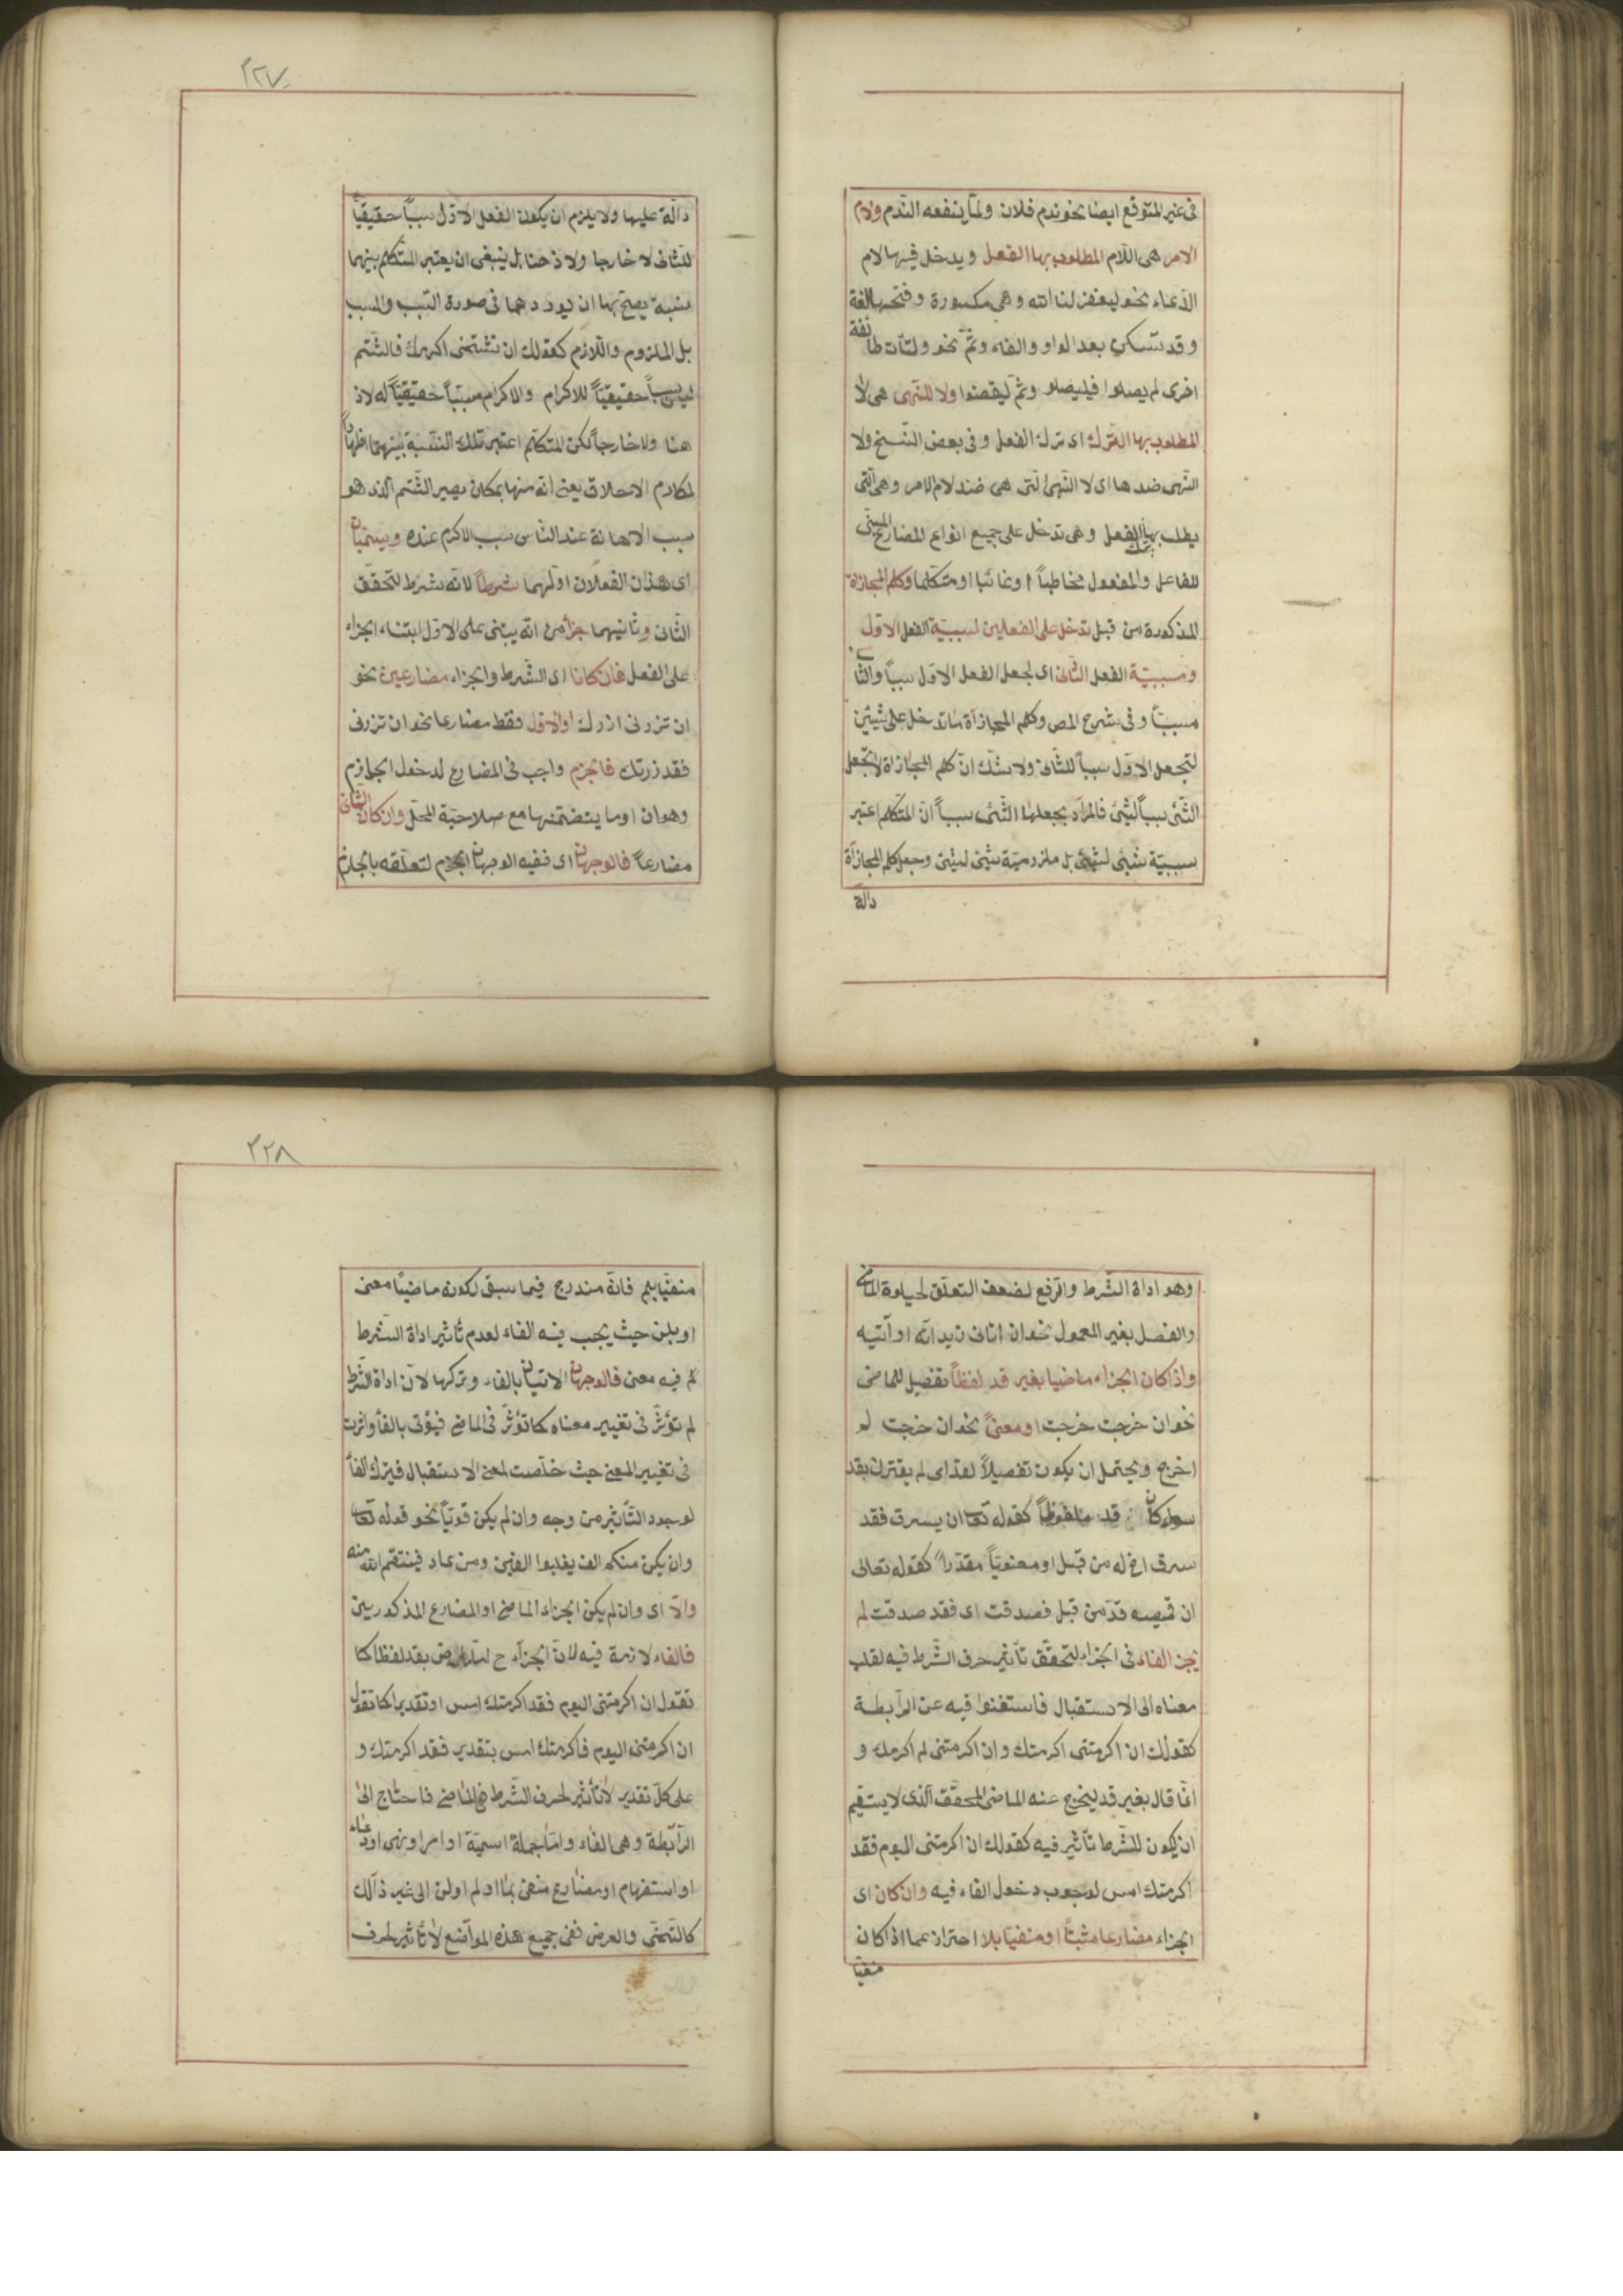 فى غير المتوقع ايضا نحو ندم فلان ولمّا ينفعه الندم ولام
الامر هى اللام المطلوب بها الفعل ويدخل فيها لام
الدّعاء نحو ليغفر لنا الله وهى مكسورة وفتحها لغة
وقد تسكن بعد الواو والفاء وثمّ نحو ولتأت طائفة
اخرى لم يصلوا فليصلوا وثمّ ليقضوا ولا للنّهى هى لا
المطلوب بها الترك اى ترك الفعل وفى بعض النّسخ ولا
النّهى ضدها اى لا النّهى الّتى هى ضد لام الامر وهى الّتى
يطلب بها ترك الفعل وهى تدخل على جميع انواع المضارع المبنى
للفاعل والمفعول مخاطباً او غائبا او متكلما وكلم المجازاة
المذكورة من قبل تدخل على الفعلين لسببيّة الفعل الاوّل
ومسببيّة الفعل الثّانى اى لجعل الفعل الاوّل سبباً والثا
مسبباً وفى شرح المص وكلم المجازاة ما تدخل على شيئين
لتجعل الاوّل سبباً للثّانى ولا شك انّ كلم المجازاة لا تجعل
الشّئ سبباً لشئ فالمراد بجعلها الشّئ سبباً انّ المتكلم اعتبر
سببيّة شئ لشئ بل ملزوميّة شئ لشئ وجعل كلم المجازاة
دالّة
٢٢٧
دالّة عليها ولا يلزم ان يكون الفعل الاوّل سبباً حقيقيّاً
للثانى لا خارجا ولا ذهنا بل ينبغى ان يعتبر المتكلم بينهما
نسبة يصحّ بها ان يوردهما فى صورة السّبب والمسبب
بل الملزوم واللازم كقولك ان تشتمنى اكرمك فالشّتم
ليس سبباً حقيقيّاً للاكرام والاكرام مسبّباً حقيقيّاً له لا ذ
هنا ولا خارجاً لكن المتكلّم اعتبر تلك النّسبة بينهما اظهاراً
لمكارم الاخلاق يعنى انّه منها بمكان يصير الشّتم الّذى هو
سبب الاهانة عند النّاس سبب الاكرم عنده ويسمّيان
اى هذان الفعلان اوّلهما شرطاً لانّه شرط لتحقّق
الثّانى وثانيهما جزاء من انّه يبتنى على الاوّل ابتناء الجزاء
على الفعل فان كانا اى الشّرط والجزاء مضارعين نحو
ان تزرنى ازرك او الاوّل فقط مضارعا نحو ان تزرنى
فقد زرتك فالجزم واجب فى المضارع لدخول الجوازم
وهو ان او ما يتضمّنها مع صلاحيّة المحلّ وان كان الثّانى
مضارعاً فالوجهان اى ففيه الوجهان الجزم لتعلّقه بالجازم
وهو اداة الشّرط والرّفع لضعف التعلّق لحيلولة الماضى
والفصل بغير المعمول نحو ان اتانى زيد اته او آتيه
واذ كان الجزاء ماضيا بغير قد لفظاً تفصيل للماضى
نحو ان خرجت خرجت او معنىً نحو ان خرجت لم
اخرج ويحتمل ان يكون تفصيلاً لقد اى لم يقترن بقد
سواء كان قد ملفوظاً كقوله تعا ان يسرق فقد
سرق اخ له من قبل او معنويّاً مقدّراً كقوله تعالى
ان قميصه قدّ من قبل فصدقت اى فقد صدقت لم
يجز الفاء فى الجزاء لتحقّق تأثير حرف الشّرط فيه لقلب
معناه الى الاستقبال فاستغنوا فيه عن الرّابطة
كقولك ان اكرمتنى اكرمتك وان اكرمتنى لم اكرمك و
انّما قال بغير قد ليخرج عنه الماضى المحقّق الّذى لا يستقيم
ان يكون للشّرط تأثير فيه كقولك ان اكرمتنى اليوم فقد
اكرمتك امس لوجوب دخول الفاء فيه وان كان اى
الجزاء مضارعا مثبتاً او منفيّا بلا احتراز عما اذا كان
منفيّا
٢٢٨
منفيّا بلم فانّه مندرج فيما سبق لكونه ماضيًا معنى
او بلن حيث يجب فيه الفاء لعدم تأثير اداة الشّرط
فيه معنى فالوجهان الاتيان بالفاء وتركها لانّ اداة الشّرط
لم تؤثّر فى تغيير معناه كما تؤثّر فى الماضى فيؤتى بالفاء واثرت
فى تغيير المعنى حيث خلّصت لمعنى الاستقبال فيترك الفاء
لوجود التّأثير من وجه وان لم يكن قويّاً نحو قوله تعا
وان يكن منكم الف يغلبوا الفين ومن عاد فينتقم الله منه
والّا اى وان لم يكن الجزاء الماضى او المضارع المذكورين
فالفاء لازمة فيه لانّ الجزاء ح امّا ماض بقد لفظا كما
تقول ان اكرمتنى اليوم فقد اكرمتك امس او تقديرا كما تقول
ان اكرمتنى اليوم فاكرمتك امس بتقدير فقد اكرمتك و
على كلّ تقدير لا تأثير لحرف الشّرط فى الماضى فاحتاج الى
الرّابطة وهى الفاء وامّا جملة اسميّة او امر او نهى او دعاء
او استفهام او مضارع منفى بما او لم او لن الى غير ذالك
كالتّمنّى والعرض ففى جميع هذه المواضع لا تأثير لحرف